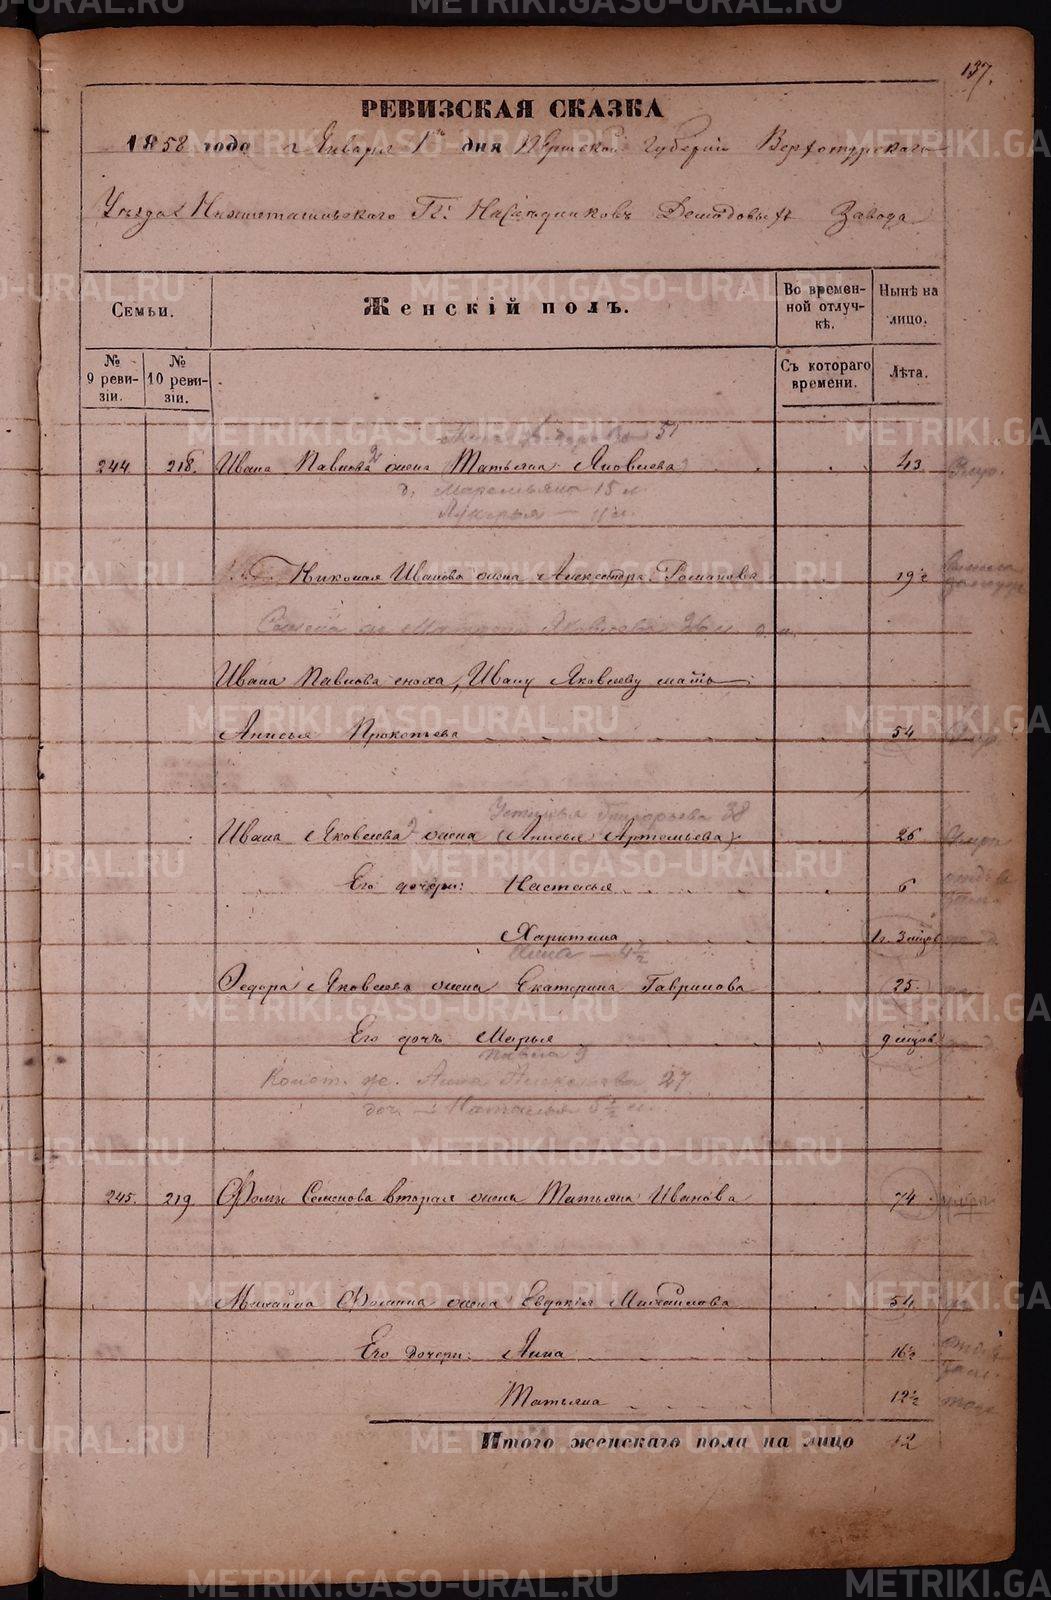 137.
РЕВИЗСКАЯ СКАЗКА
1858 года Января 1го дня Пермской Губернии Верхотурскаго
Уѣзда Нижнетагильскаго Гг: Наслѣдниковъ Демидовыхъ Завода
Семьи.
Женскій полъ.
Во времен-
ной отлуч-
кѣ.
Нынѣ на
лицо.
№
9 реви-
зіи.
№
10 реви-
зіи.
Съ котораго
времени.
Лѣта.
51
244 218. Ивана Павлова 2 жена Татьяна Яковлева 43
д. Маремьяна 15 л.
Лукерья — 11 л.
Николая Иванова жена Александра Романова 19½
Яковлева
Ивана Павлова сноха, Ивану Яковлеву мать
Анисья Прокопьева 54
Устинья Григорьева 38
Ивана Яковлева 2 жена (Анисья Артемьева) 26
Его дочери: Настасья 6
Харитина 1 г. 3 мѣцов
Анна — 4½
Федора Яковлева жена Екатерина Гаврилова 25
Его дочь Марья 9 мѣцов
Павла 9
Конст. ж. Анна Алексеева 27
доч — Наталья 5½ л.
245. 219. Фомы Семенова вторая жена Татьяна Иванова 74
Михайла Фомина жена Евдокія Михайлова 54
Его дочери: Анна 16½
Татьяна 12½
Итого женскаго пола на лицо 12
METRIKI.GASO-URAL.RU